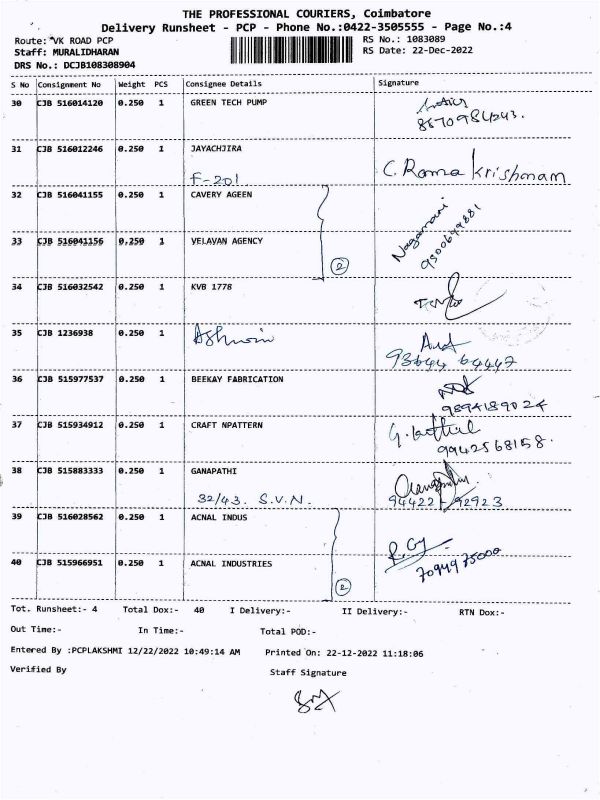 THE PROFESSIONAL COURIERS, Coimbatore
Delivery Runsheet - PCP - Phone No.:0422-3505555 - Page No.:4
Route: VK ROAD PCP RS No.: 1083089
Staff: MURALIDHARAN RS Date: 22-Dec-2022
DRS No.: DCJB108308904
S No Consignment No Weight PCS Consignee Details Signature
30 CJB 516014120 0.250 1 GREEN TECH PUMP
8870984243.
31 CJB 516012246 0.250 1 JAYACHJIRA
F-201 C. Rama Krishnan
32 CJB 516041155 0.250 1 CAVERY AGEEN
Nagamani
9300649881
33 CJB 516041156 0.250 1 VELAVAN AGENCY
2
34 CJB 516032542 0.250 1 KVB 1778
35 CJB 1236938 0.250 1 Ashwin
93644 64447
36 CJB 515977537 0.250 1 BEEKAY FABRICATION
9894189024
37 CJB 515934912 0.250 1 CRAFT NPATTERN
9942568158.
38 CJB 515883333 0.250 1 GANAPATHI
32/43. S.V.N. 94422-92923
39 CJB 516028562 0.250 1 ACNAL INDUS
40 CJB 515966951 0.250 1 ACNAL INDUSTRIES
7094975000
2
Tot. Runsheet:- 4 Total Dox:- 40 I Delivery:- II Delivery:- RTN Dox:-
Out Time:- In Time:- Total POD:-
Entered By :PCPLAKSHMI 12/22/2022 10:49:14 AM Printed On: 22-12-2022 11:18:06
Verified By Staff Signature